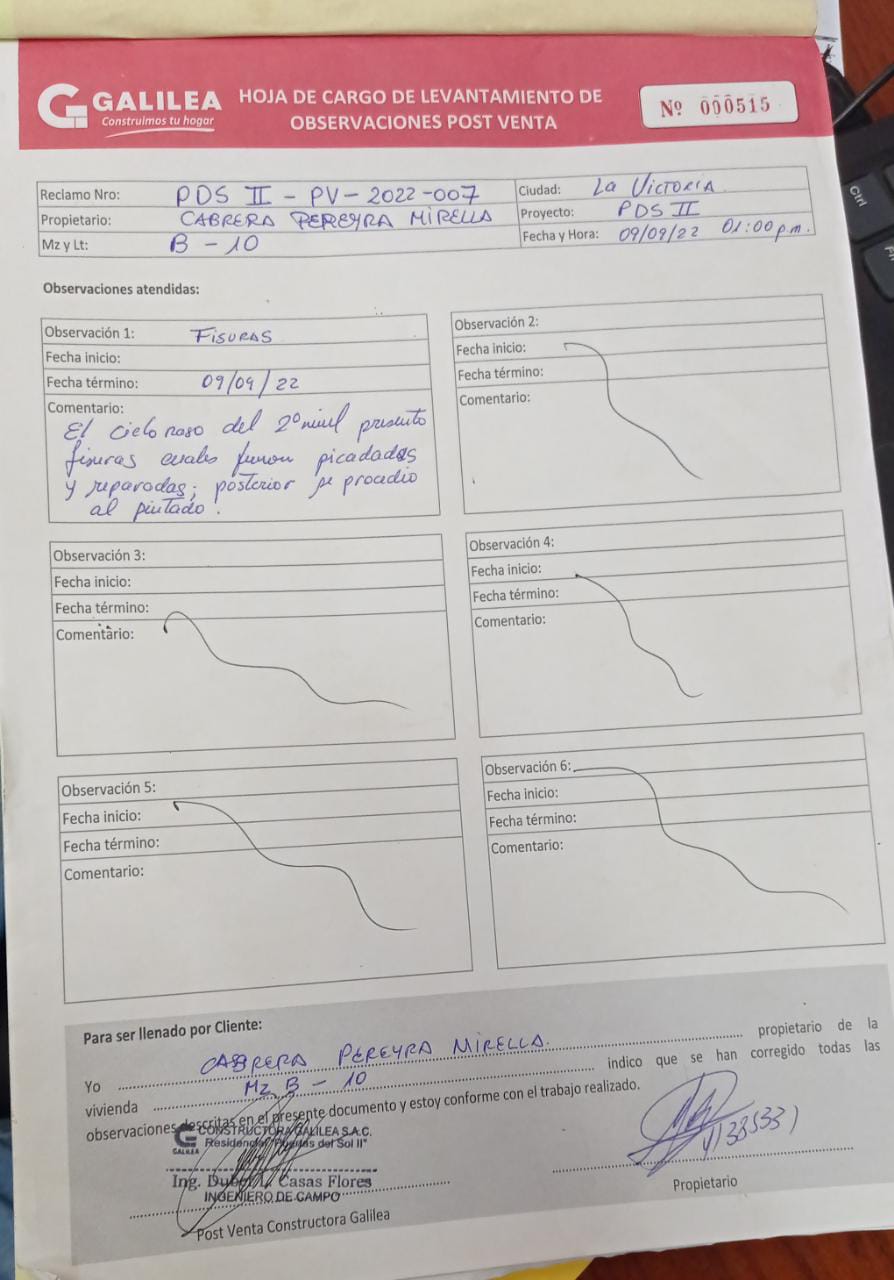 GALILEA
Construimos tu hogar
HOJA DE CARGO DE LEVANTAMIENTO DE
OBSERVACIONES POST VENTA
Nº 000515
Reclamo Nro: PDS II - PV - 2022 - 007
Ciudad: La Victoria
Propietario: CABRERA PEREYRA MIRELLA
Proyecto: PDS II
Mz y Lt: B - 10
Fecha y Hora: 09/09/22 01:00 p.m.
Observaciones atendidas:
Observación 1: FISURAS
Fecha inicio:
Fecha término: 09/09/22
Comentario:
El cielo raso del 2º nivel presento
fisuras cuales picadadas
y reparadas; posterior se procedio
al pintado.
Observación 2:
Fecha inicio:
Fecha término:
Comentario:
Observación 3:
Fecha inicio:
Fecha término:
Comentario:
Observación 4:
Fecha inicio:
Fecha término:
Comentario:
Observación 5:
Fecha inicio:
Fecha término:
Comentario:
Observación 6:
Fecha inicio:
Fecha término:
Comentario:
Para ser llenado por Cliente:
Yo CABRERA PEREYRA MIRELLA. propietario de la
vivienda Mz B - 10 indico que se han corregido todas las
observaciones descritas en el presente documento y estoy conforme con el trabajo realizado.
GALILEA
CONSTRUCTORA GALILEA S.A.C.
Residencial "Puertas del Sol II"
Ing. Casas Flores
INGENIERO DE CAMPO
Post Venta Constructora Galilea
Propietario
Ctrl